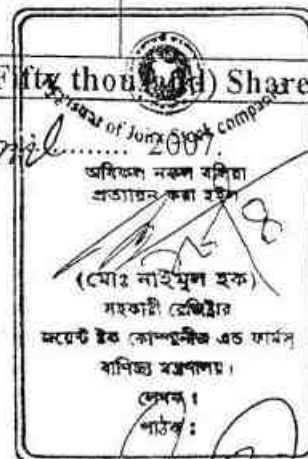 Fifty thousand) Share
Registrar of Joint Stock Compan
April........ 2007.
অবিকল নকল বলিয়া
প্রত্যায়ন করা হইল
(মোঃ নাইমুল হক)
সহকারী রেজিষ্ট্রার
জয়েন্ট ষ্টক কোম্পানীজ এন্ড ফার্মস
বাণিজ্য মন্ত্রণালয়।
লেখক :
পাঠক :